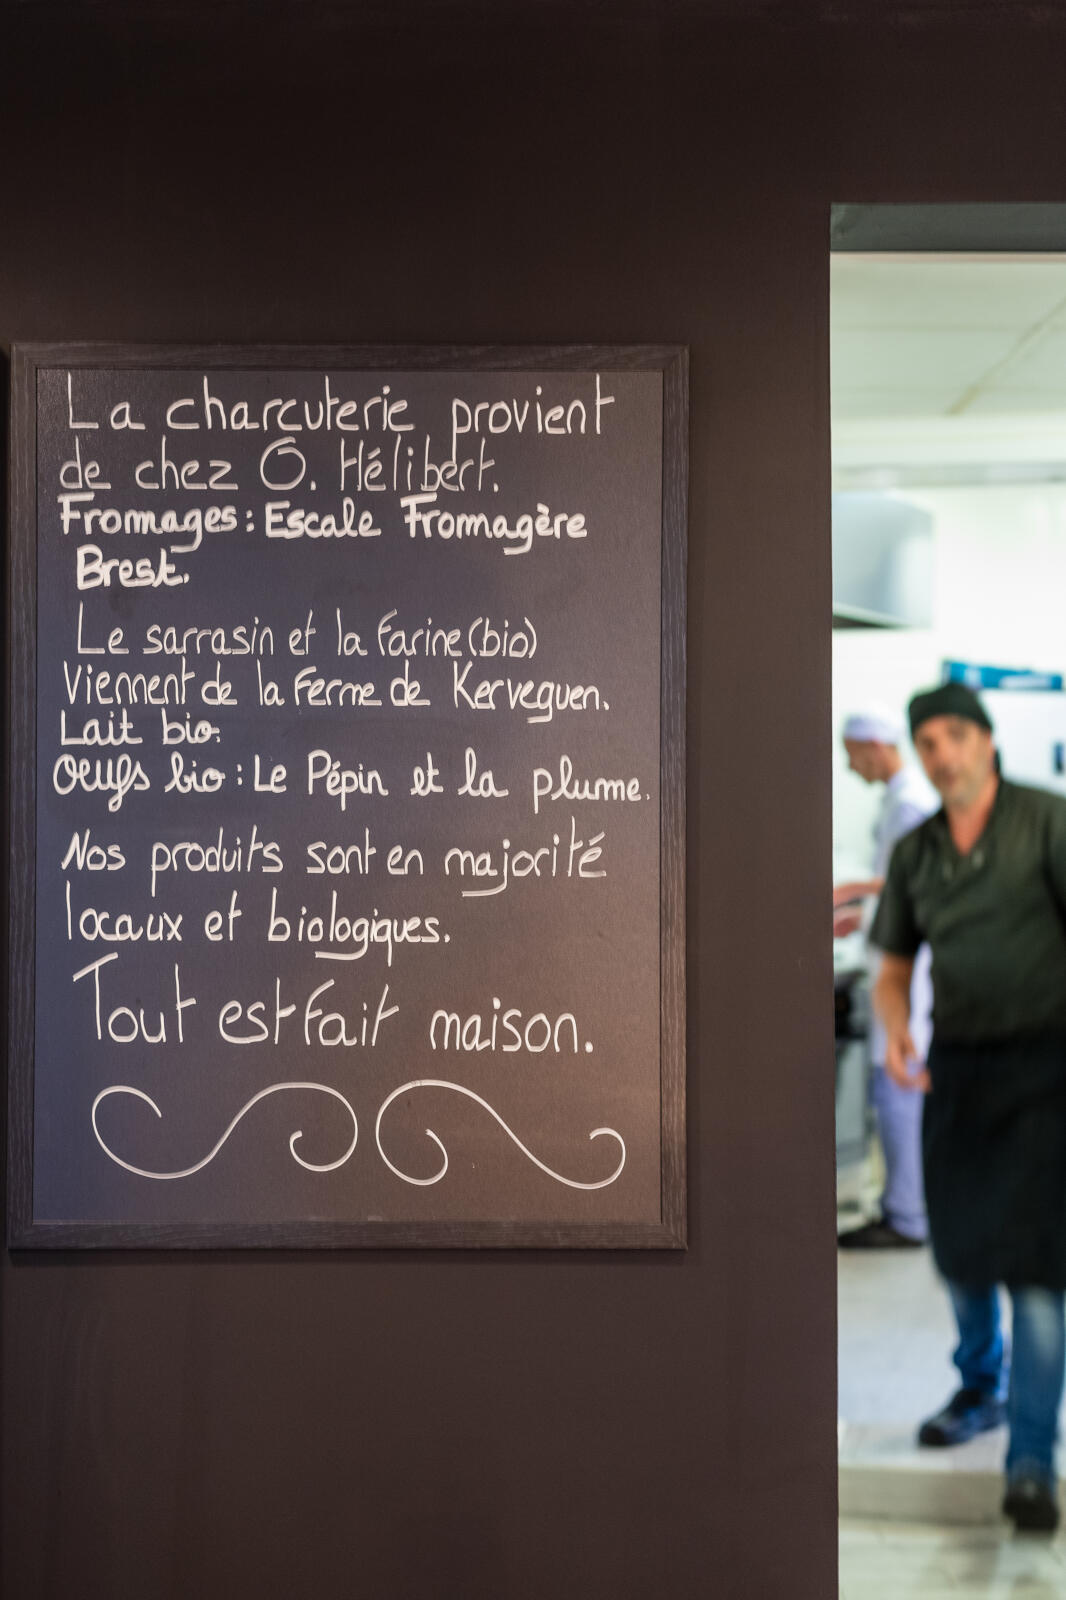 La charcuterie provient
de chez O. Hélibert.
Fromages : Escale Fromagère
Brest.
Le sarrasin et la farine (bio)
Viennent de la Ferme de Kerveguen.
Lait bio.
Oeufs bio : Le Pépin et la plume.
Nos produits sont en majorité
locaux et biologiques.
Tout est fait maison.